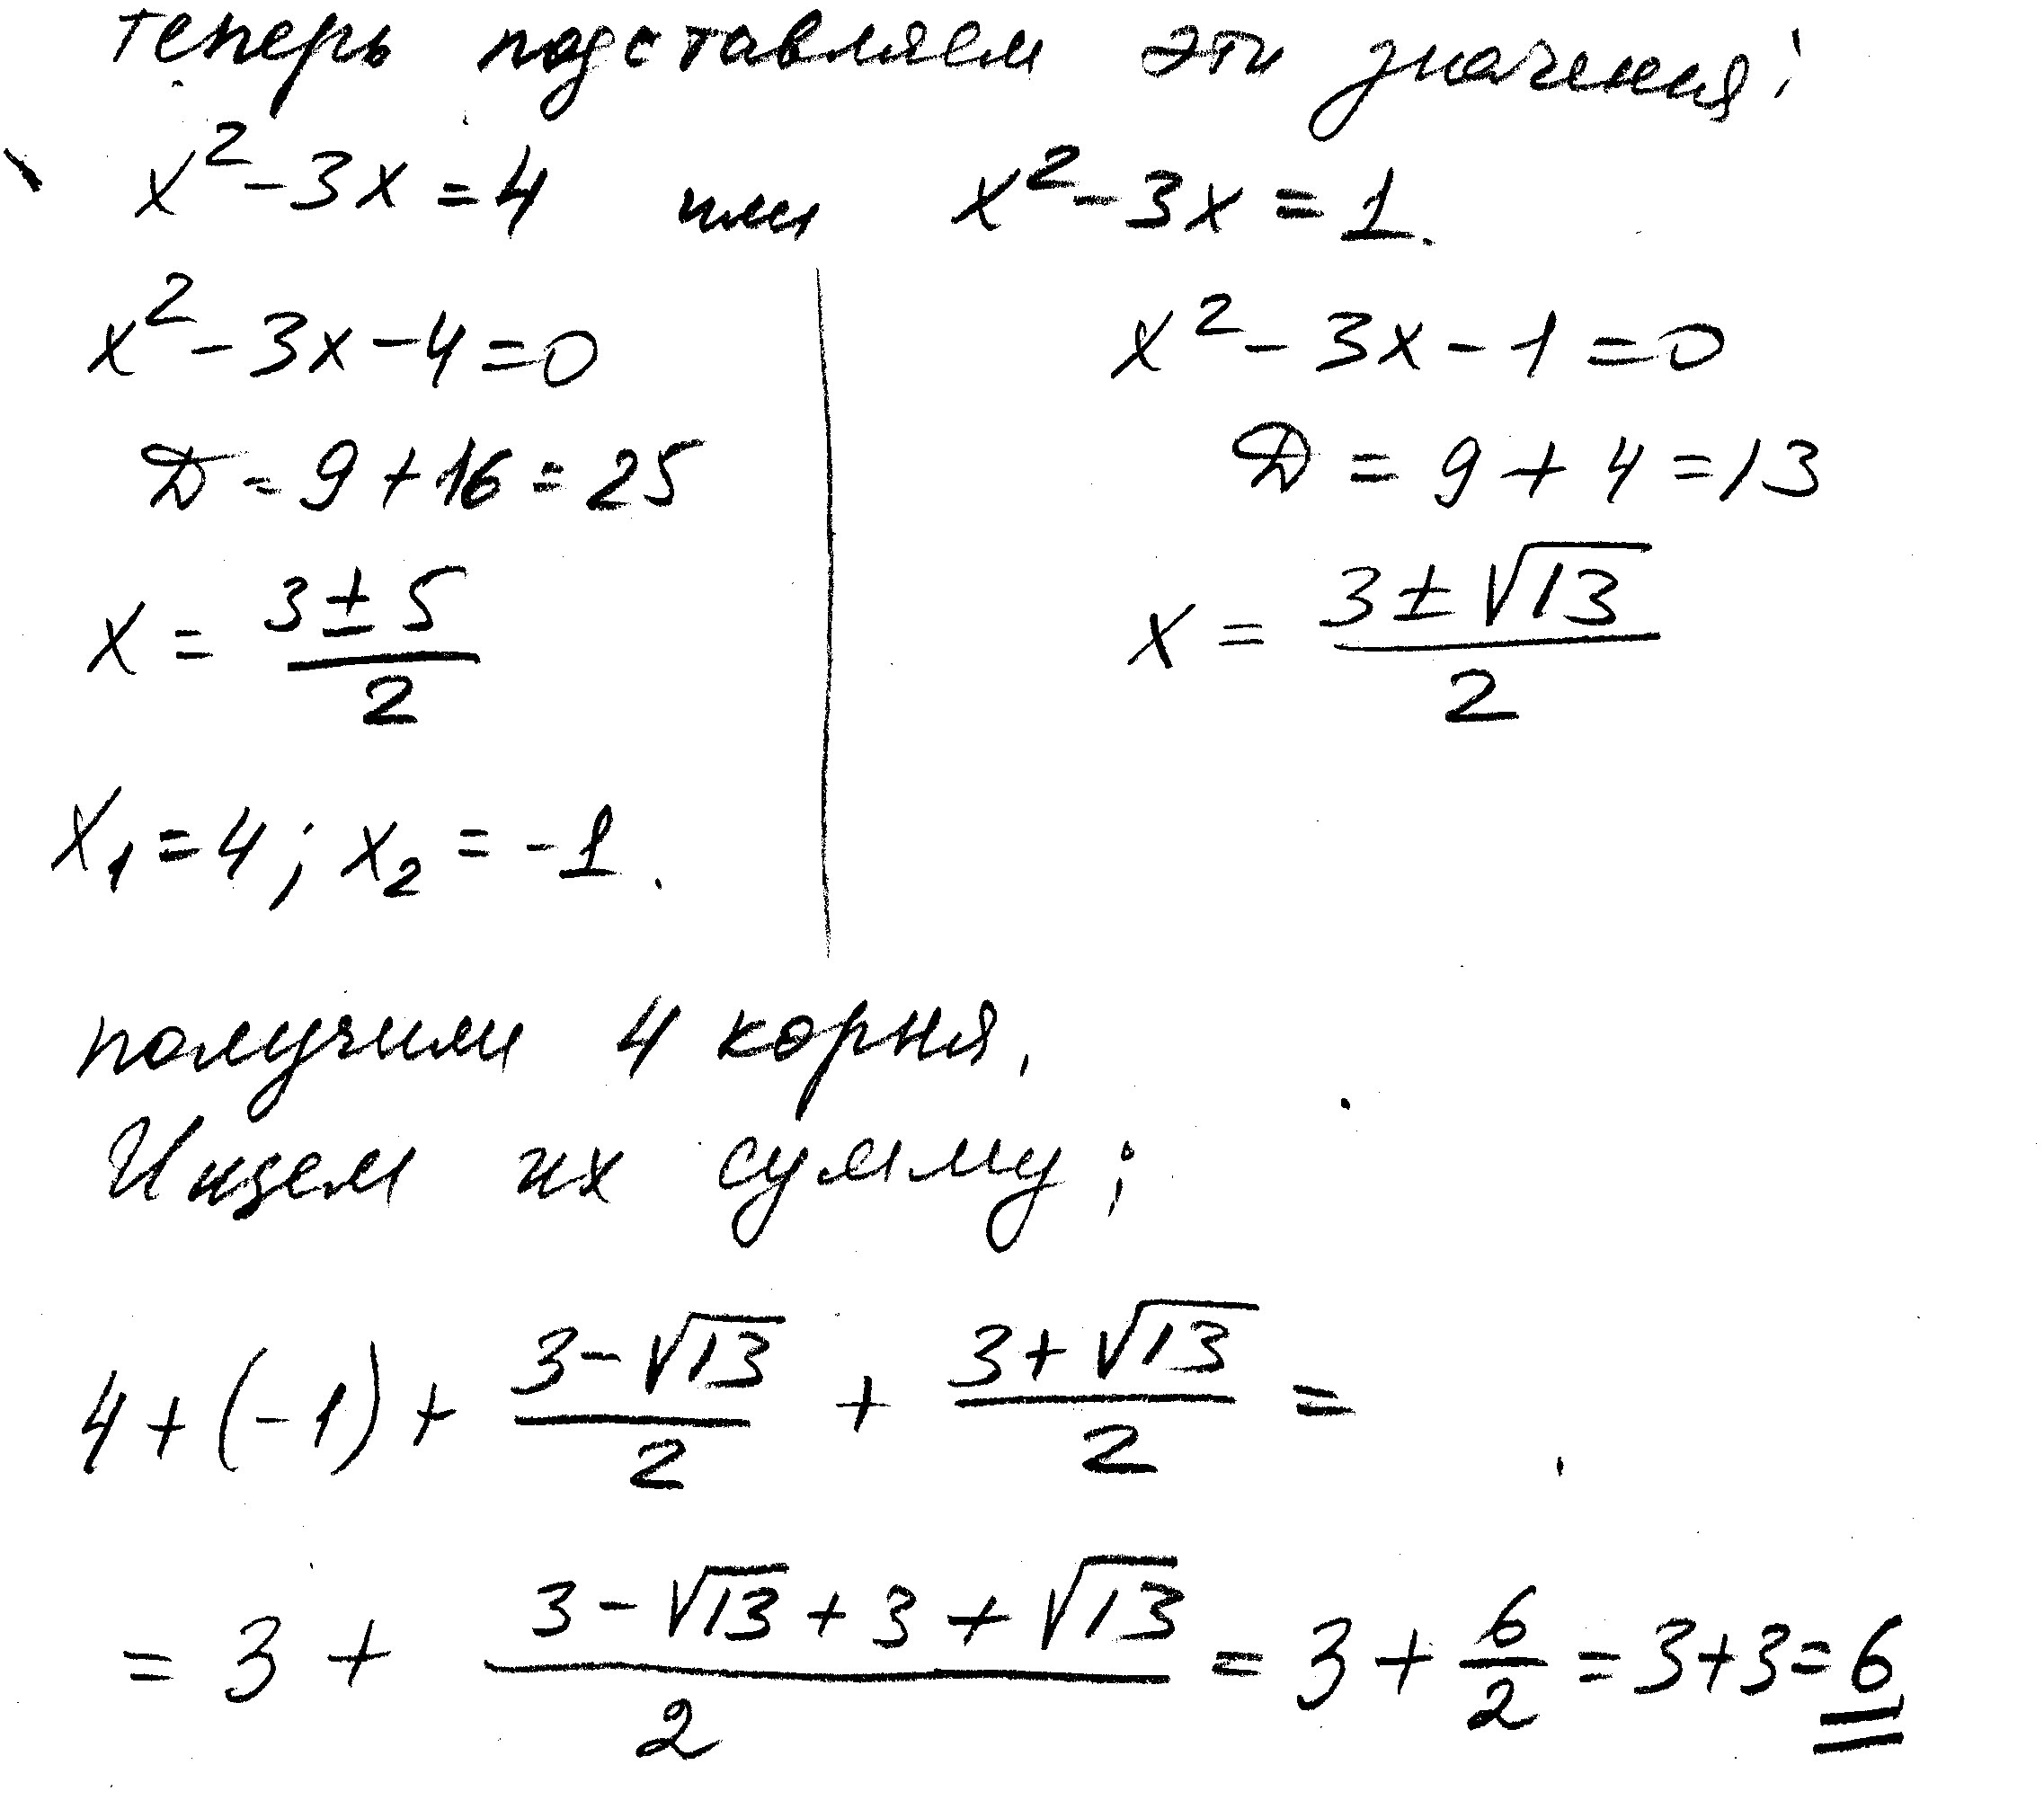 теперь подставляем эти значения:
x² - 3x = 4 или x² - 3x = 1.
x² - 3x - 4 = 0
D = 9 + 16 = 25
x = (3 ± 5)/2
x₁ = 4; x₂ = -1.
x² - 3x - 1 = 0
D = 9 + 4 = 13
x = (3 ± √13)/2
получили 4 корня.
Ищем их сумму:
4 + (-1) + (3 - √13)/2 + (3 + √13)/2 =
= 3 + (3 - √13 + 3 + √13)/2 = 3 + 6/2 = 3 + 3 = 6